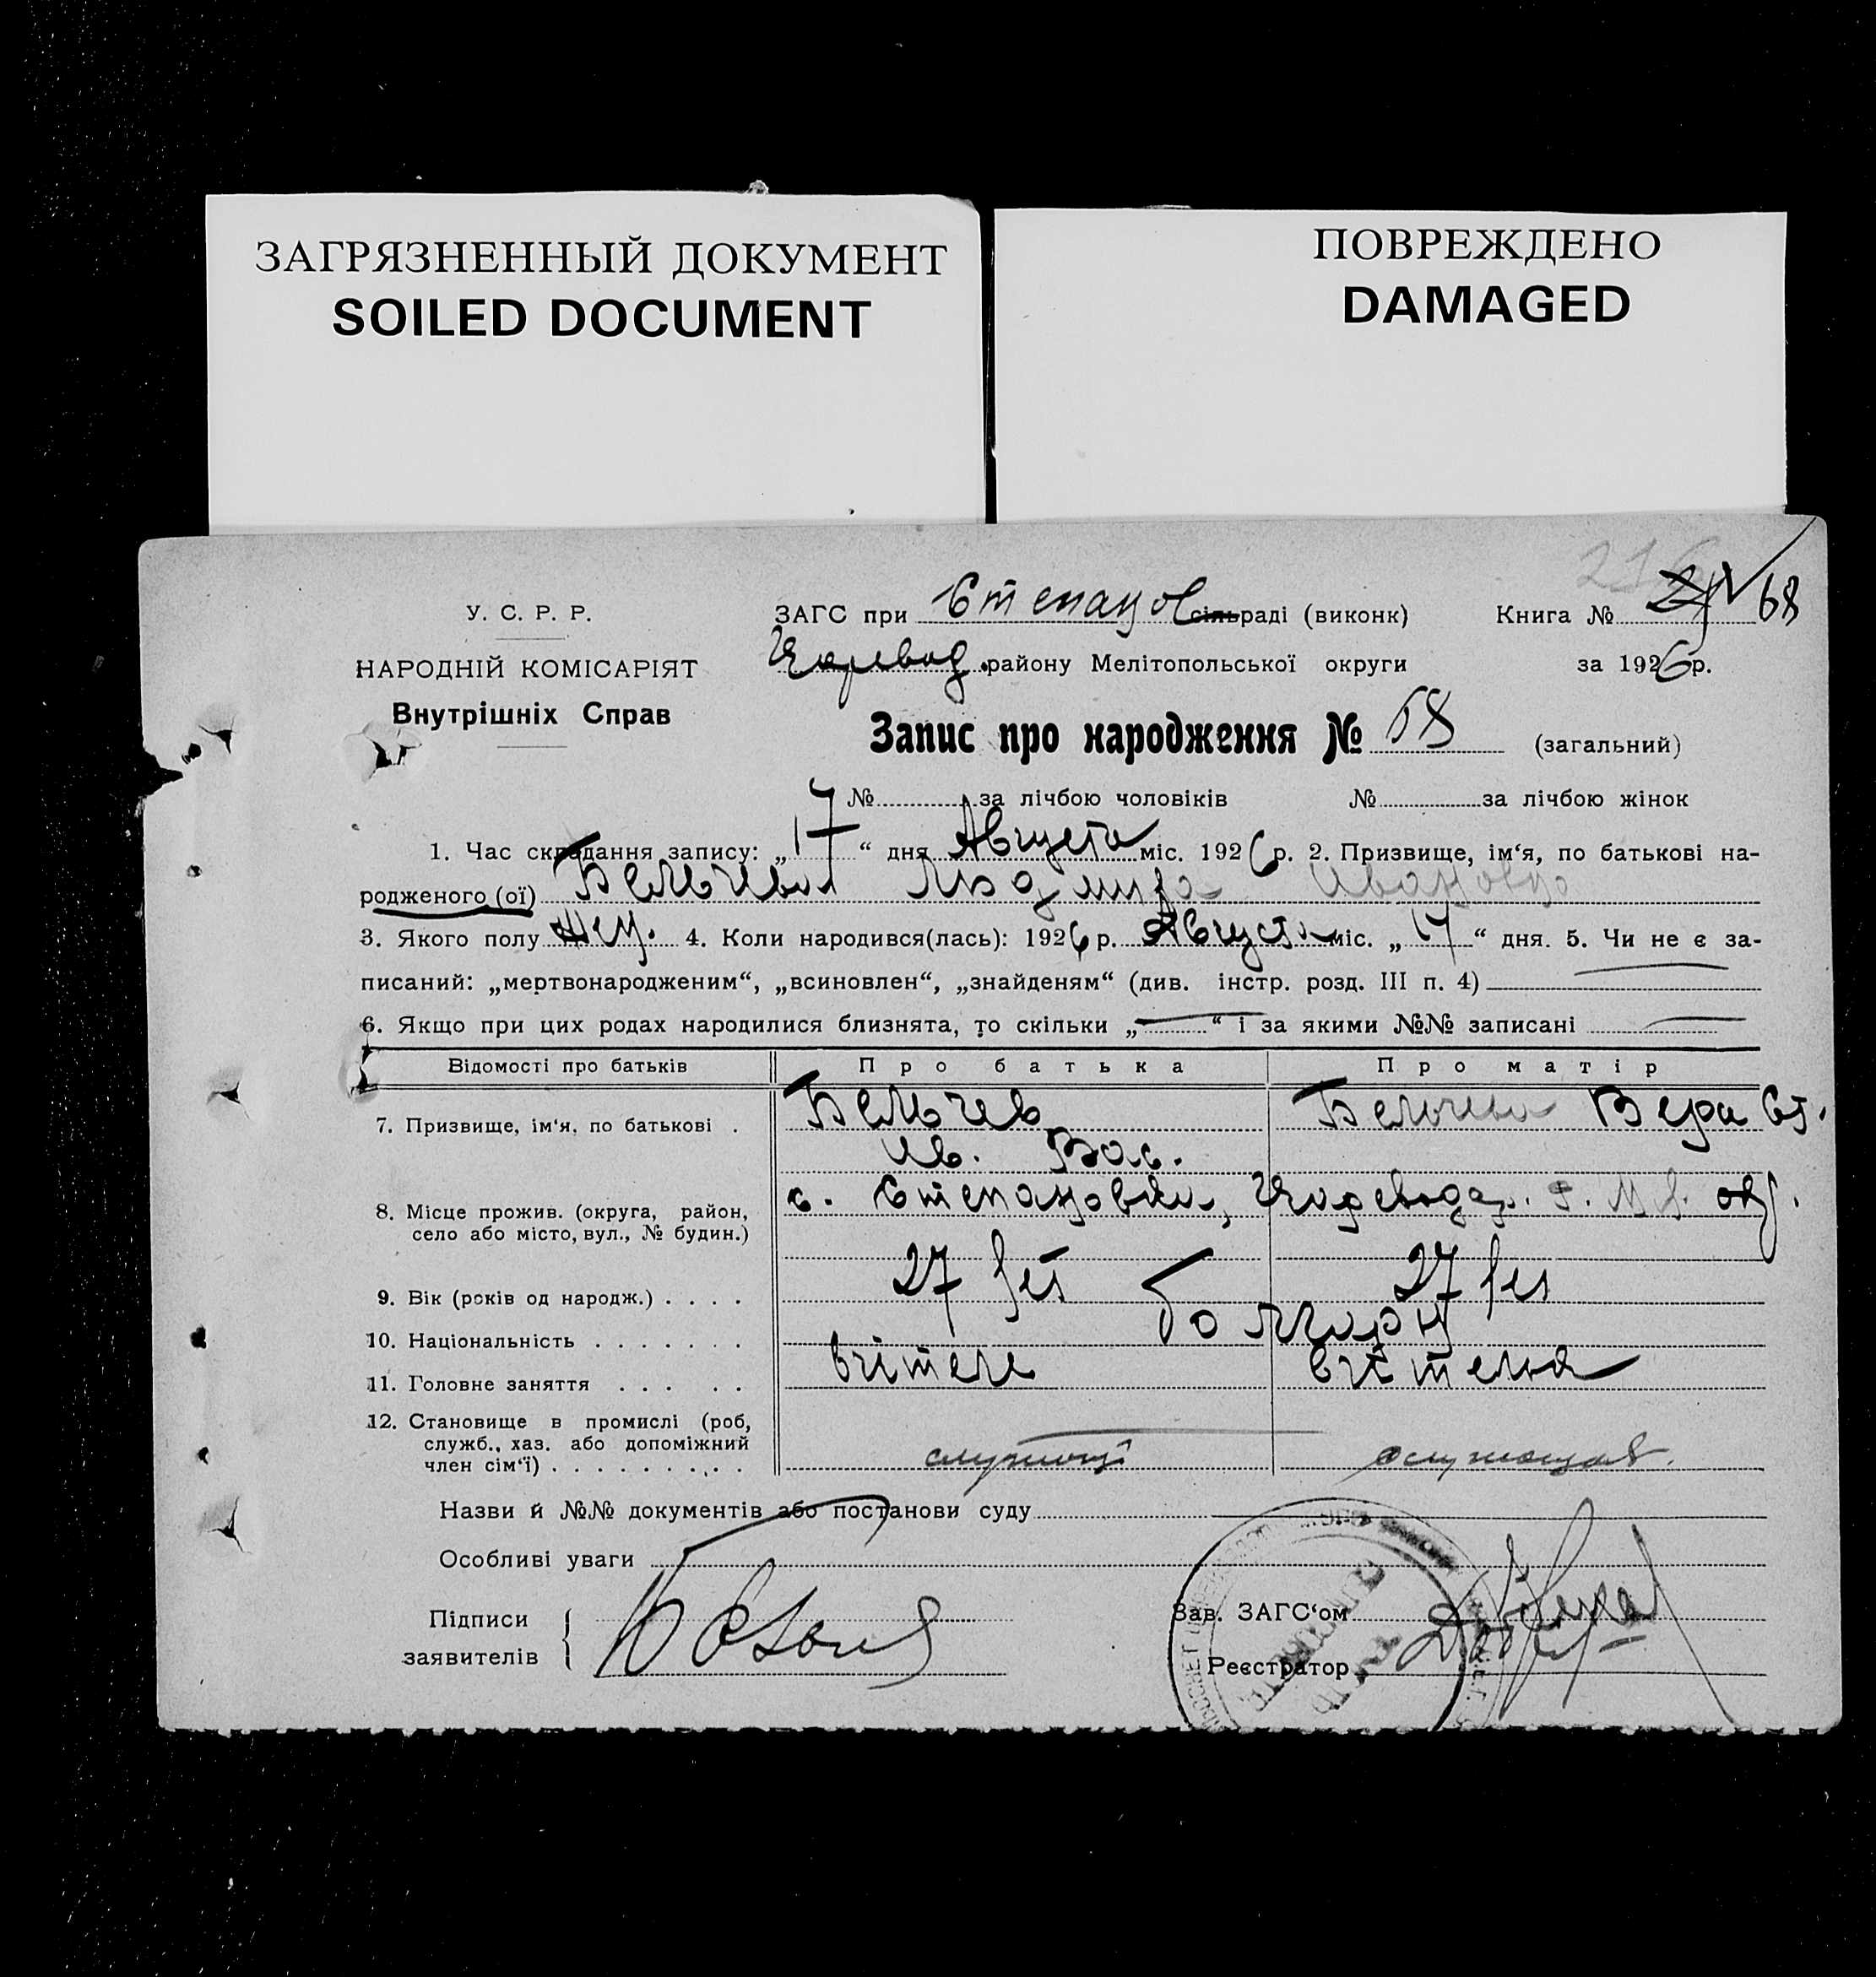 ЗАГРЯЗНЕННЫЙ ДОКУМЕНТ
SOILED DOCUMENT
ПОВРЕЖДЕНО
DAMAGED
216
У. С. Р. Р.
НАРОДНІЙ КОМІСАРІЯТ
Внутрішніх Справ
ЗАГС при Степанов сільраді (виконк)
району Мелітопольської округи
Книга № 68
за 1926 р.
Запис про народження № 68 (загальний)
№ за лічбою чоловіків № за лічбою жінок
1. Час складання запису: „17“ дня Августа міс. 1926 р. 2. Призвище, ім‘я, по батькові на-
родженого (ої) Бельчева Людмира Ивановна
3. Якого полу жен. 4. Коли народився(лась): 1926 р. Августа міс. „ “ дня. 5. Чи не є за-
писаний: „мертвонародженим“, „всиновлен“, „знайденям“ (див. інстр. розд. III п. 4)
6. Якщо при цих родах народилися близнята, то скільки „—“ і за якими №№ записані —
Відомості про батьків Про батька Про матір
7. Призвище, ім‘я, по батькові . Бельчев Бельчева Вера Ст.
Ив. Вас.
8. Місце прожив. (округа, район, село або місто, вул., № будин.) с. Степановка, окр.
9. Вік (років од народж.) . . . . 27 лет 27 лет
10. Національність . . . . . . . болгары
11. Головне заняття . . . . . вчітель вчітелька
12. Становище в промислі (роб, служб., хаз. або допоміжний член сім‘ї) . . . . . . . . . служащ служащая
Назви й №№ документів або постанови суду
Особливі уваги
Підписи
заявителів
Зав. ЗАГС‘ом
Реєстратор